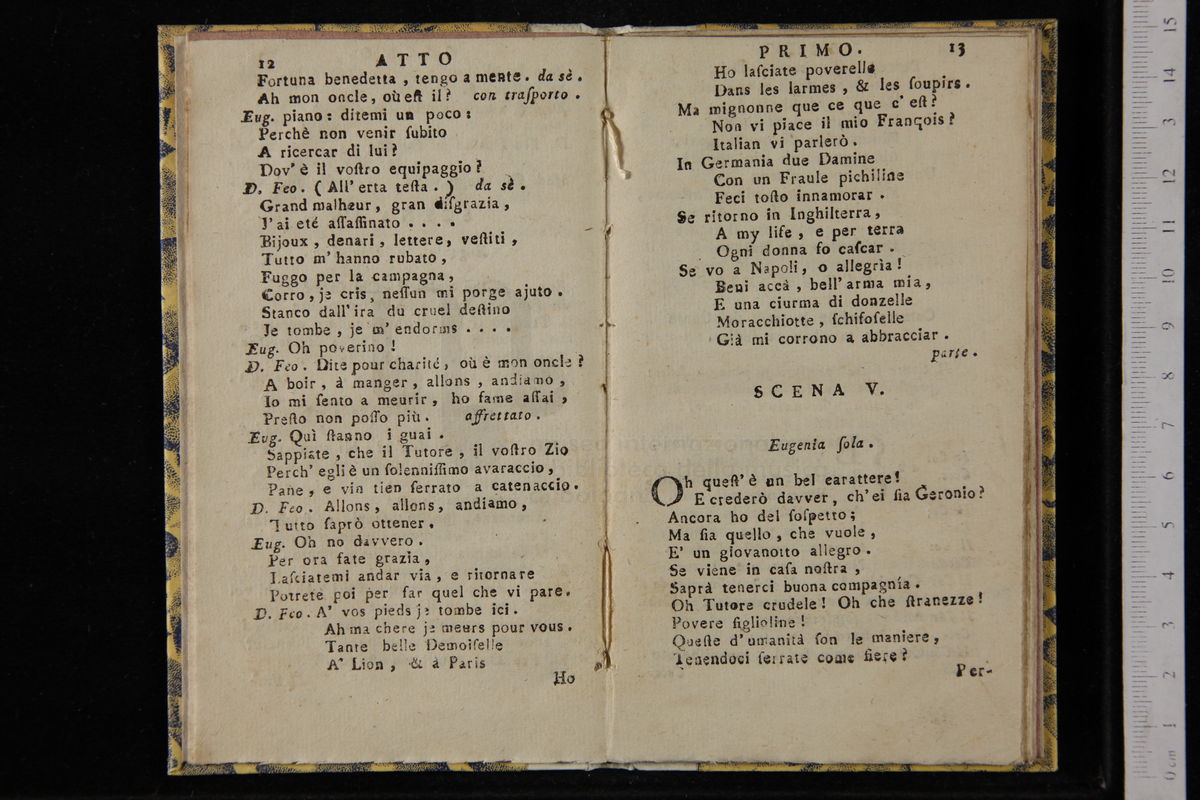 12 ATTO
Fortuna benedetta, tengo a mente. da sè.
Ah mon oncle, où eſt il? con traſporto.
Eug. piano: ditemi un poco:
Perchè non venir ſubito
A ricercar di lui?
Dov' è il voſtro equipaggio?
D. Feo. (All' erta teſta.) da sè.
Grand malheur, gran diſgrazia,
J'ai eté aſſaſſinato ....
Bijoux, denari, lettere, veſtiti,
Tutto m' hanno rubato,
Fuggo per la campagna,
Corro, je cris, neſſun mi porge ajuto.
Stanco dall' ira du cruel deſtino
Je tombe, je m' endorms ....
Eug. Oh poverino!
D. Feo. Dite pour charité, où è mon oncle?
A boir, à manger, allons, andiamo,
Io mi ſento a meurir, ho fame aſſai,
Preſto non poſſo più. affrettato.
Eug. Quì ſtanno i guai.
Sappiate, che il Tutore, il voſtro Zio
Perch' egli è un ſolenniſſimo avaraccio,
Pane, e vin tien ſerrato a catenaccio.
D. Feo. Allons, allons, andiamo,
Tutto ſaprò ottener.
Eug. Oh no davvero.
Per ora fate grazia,
Laſciatemi andar via, e ritornare
Potrete poi per far quel che vi pare.
D. Feo. A' vos pieds je tombe ici.
Ah ma chere je meurs pour vous.
Tante belle Demoiſelle
A' Lion, & à Paris
Ho
PRIMO. 13
Ho laſciate poverelle
Dans les larmes, & les ſoupirs.
Ma mignonne que ce que c' eſt?
Non vi piace il mio François?
Italian vi parlerò.
In Germania due Damine
Con un Fraule pichiline
Feci toſto innamorar.
Se ritorno in Inghilterra,
A my life, e per terra
Ogni donna fo caſcar.
Se vo a Napoli, o allegrìa!
Beni accà, bell' arma mia,
E una ciurma di donzelle
Moracchiotte, ſchifoſelle
Già mi corrono a abbracciar.
parte.
SCENA V.
Eugenia ſola.
Oh queſt' è un bel carattere!
E crederò davver, ch' ei ſia Geronio?
Ancora ho del ſoſpetto;
Ma ſia quello, che vuole,
E' un giovanotto allegro.
Se viene in caſa noſtra,
Saprà tenerci buona compagnía.
Oh Tutore crudele! Oh che ſtranezze!
Povere figlioline!
Queſte d' umanità ſon le maniere,
Tenendoci ſerrate come fiere?
Per-
0 cm 1 2 3 4 5 6 7 8 9 10 11 12 3 14 15